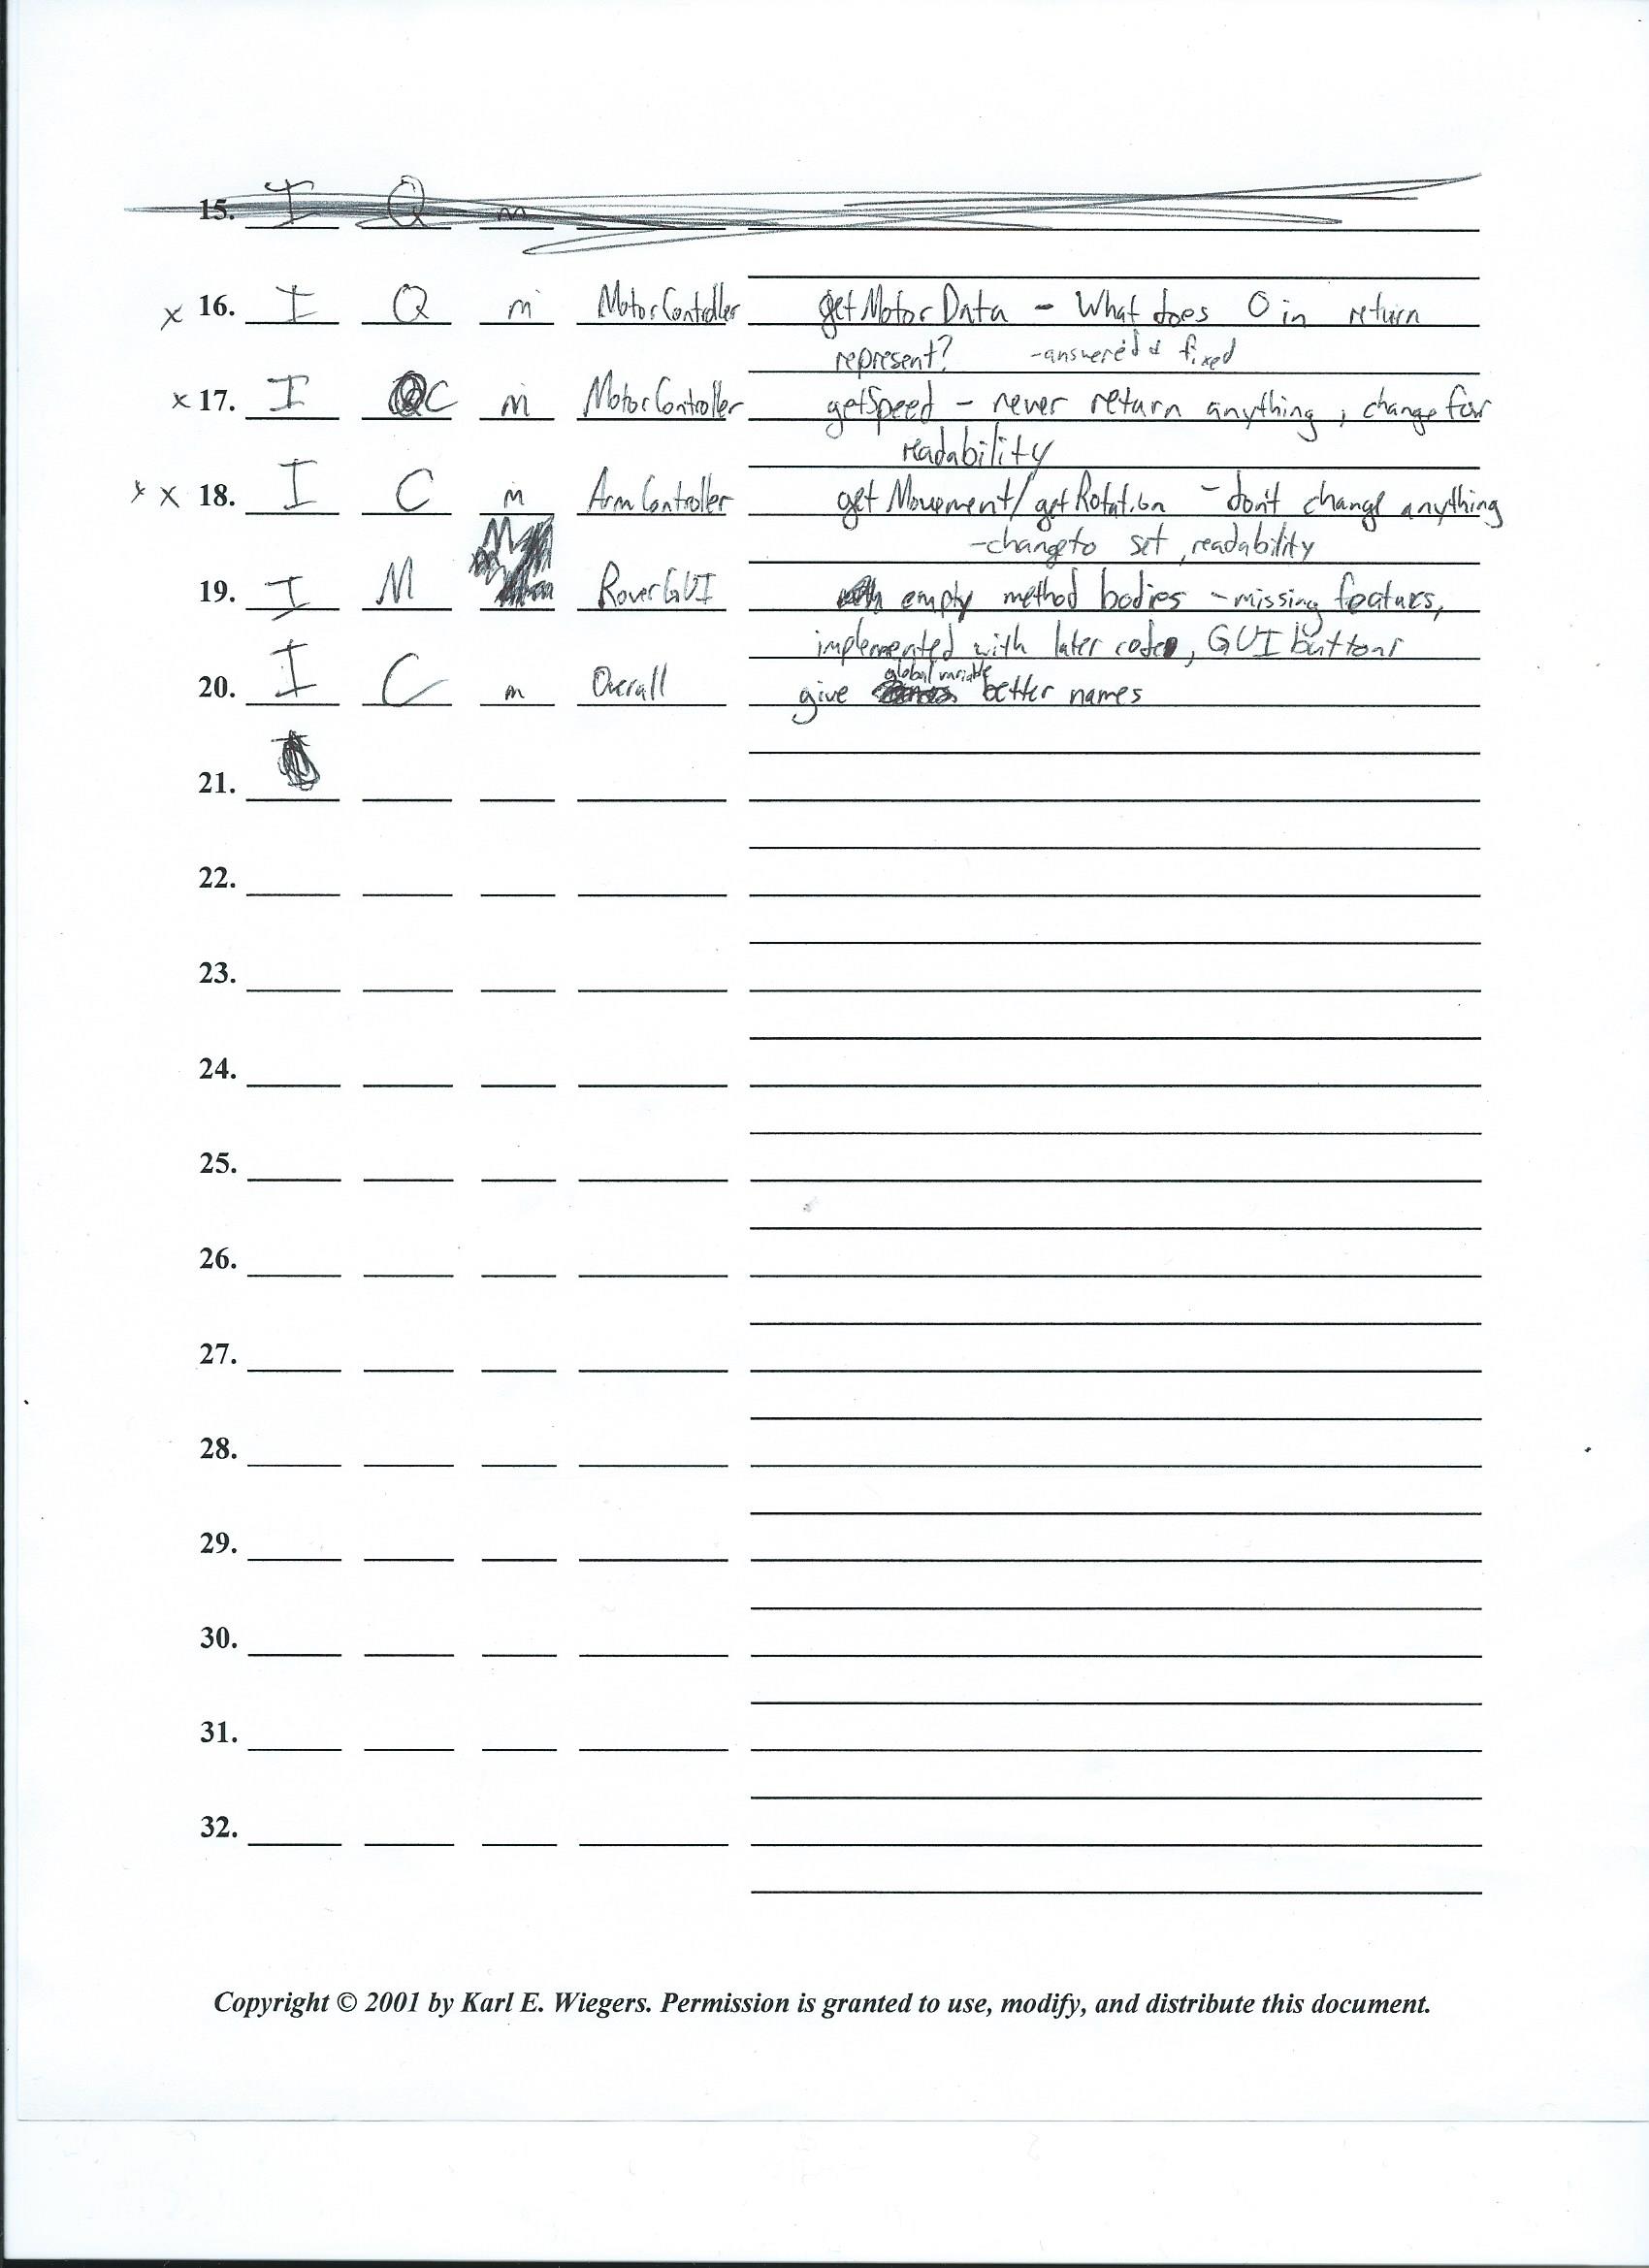 15. I Q m
x 16. I Q m MotorController getMotorData - What does 0 in return
represent? -answered & fixed
x 17. I C m MotorController getSpeed - never return anything, change for
readability
x x 18. I C m ArmController getMovement/getRotation - don't change anything
-change to set, readability
19. I M RoverGUI empty method bodies - missing featurs,
implemented with later code, GUI buttons
global variable
20. I C m Overall give better names
21.
22.
23.
24.
25.
26.
27.
28.
29.
30.
31.
32.
Copyright © 2001 by Karl E. Wiegers. Permission is granted to use, modify, and distribute this document.